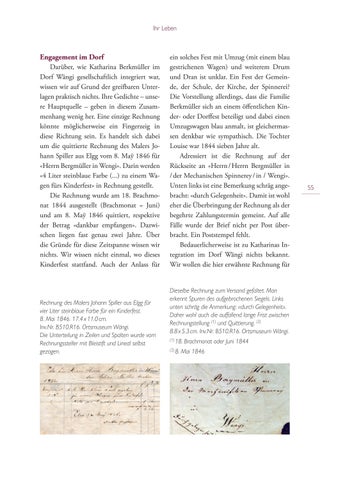 Ihr Leben
Engagement im Dorf
Darüber, wie Katharina Berkmüller im
Dorf Wängi gesellschaftlich integriert war,
wissen wir auf Grund der greifbaren Unter-
lagen praktisch nichts. Ihre Gedichte – unse-
re Hauptquelle – geben in diesem Zusam-
menhang wenig her. Eine einzige Rechnung
könnte möglicherweise ein Fingerzeig in
diese Richtung sein. Es handelt sich dabei
um die quittierte Rechnung des Malers Jo-
hann Spiller aus Elgg vom 8. Maÿ 1846 für
«Herrn Bergmüller in Wengi». Darin werden
«4 Liter steinblaue Farbe (...) zu einem Wa-
gen fürs Kinderfest» in Rechnung gestellt.
Die Rechnung wurde am 18. Brachmo-
nat 1844 ausgestellt (Brachmonat = Juni)
und am 8. Maÿ 1846 quittiert, respektive
der Betrag «dankbar empfangen». Dazwi-
schen liegen fast genau zwei Jahre. Über
die Gründe für diese Zeitspanne wissen wir
nichts. Wir wissen nicht einmal, wo dieses
Kinderfest stattfand. Auch der Anlass für
ein solches Fest mit Umzug (mit einem blau
gestrichenen Wagen) und weiterem Drum
und Dran ist unklar. Ein Fest der Gemein-
de, der Schule, der Kirche, der Spinnerei?
Die Vorstellung allerdings, dass die Familie
Berkmüller sich an einem öffentlichen Kin-
der- oder Dorffest beteiligt und dabei einen
Umzugswagen blau anmalt, ist gleichermas-
sen denkbar wie sympathisch. Die Tochter
Louise war 1844 sieben Jahre alt.
Adressiert ist die Rechnung auf der
Rückseite an «Herrn / Herrn Bergmüller in
/ der Mechanischen Spinnereÿ / in / Wengi».
Unten links ist eine Bemerkung schräg ange-
bracht: «durch Gelegenheit». Damit ist wohl
eher die Überbringung der Rechnung als der
begehrte Zahlungstermin gemeint. Auf alle
Fälle wurde der Brief nicht per Post über-
bracht. Ein Poststempel fehlt.
Bedauerlicherweise ist zu Katharinas In-
tegration im Dorf Wängi nichts bekannt.
Wir wollen die hier erwähnte Rechnung für
55
Rechnung des Malers Johann Spiller aus Elgg für
vier Liter steinblaue Farbe für ein Kinderfest.
8. Mai 1846. 17.4 x 11.0 cm.
Inv.Nr. B510.R16. Ortsmuseum Wängi.
Die Unterteilung in Zeilen und Spalten wurde vom
Rechnungssteller mit Bleistift und Lineal selbst
gezogen.
Dieselbe Rechnung zum Versand gefaltet. Man
erkennt Spuren des aufgebrochenen Siegels. Links
unten schräg die Anmerkung: «durch Gelegenheit».
Daher wohl auch die auffallend lange Frist zwischen
Rechnungstellung (1) und Quittierung. (2)
8.8 x 5.3 cm. Inv.Nr. B510.R16. Ortsmuseum Wängi.
(1) 18. Brachmonat oder Juni 1844
(2) 8. Mai 1846
Herrn
Herrn Bergmüller in
Wengi